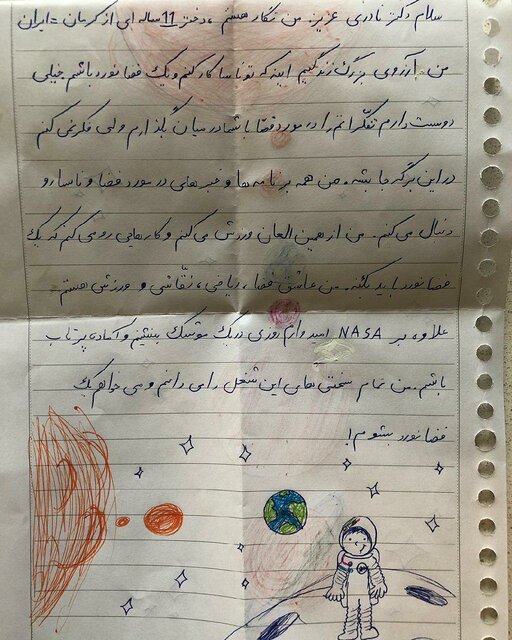 سلام دکتر نادری عزیز. من نگار هستم، دختر 11 ساله ای از کرمان - ایران
من آرزوی بزرگ زندگیم اینه که تو ناسا کار کنم و یک فضا نورد باشم خیلی
دوست دارم تفکّراتم را در مورد فضا با شما در میان بگذارم ولی فکر نمی کنم
در این برگه جا بشه. من همه برنامه ها و خبر های در مورد فضا و ناسا رو
دنبال می کنم. من از همین العان ورزش می کنم و کارهایی رو می کنم که یک
فضا نورد باید بکنه. من عاشق فضا، ریاضی، نقّاشی و ورزش هستم
علاوه بر NASA امیدوارم روزی در یک موشک بشینم و آماده پرتاب
باشم. من تمام سختی های این شغل را می دانم و می خواهم یک
فضا نورد بشوم!